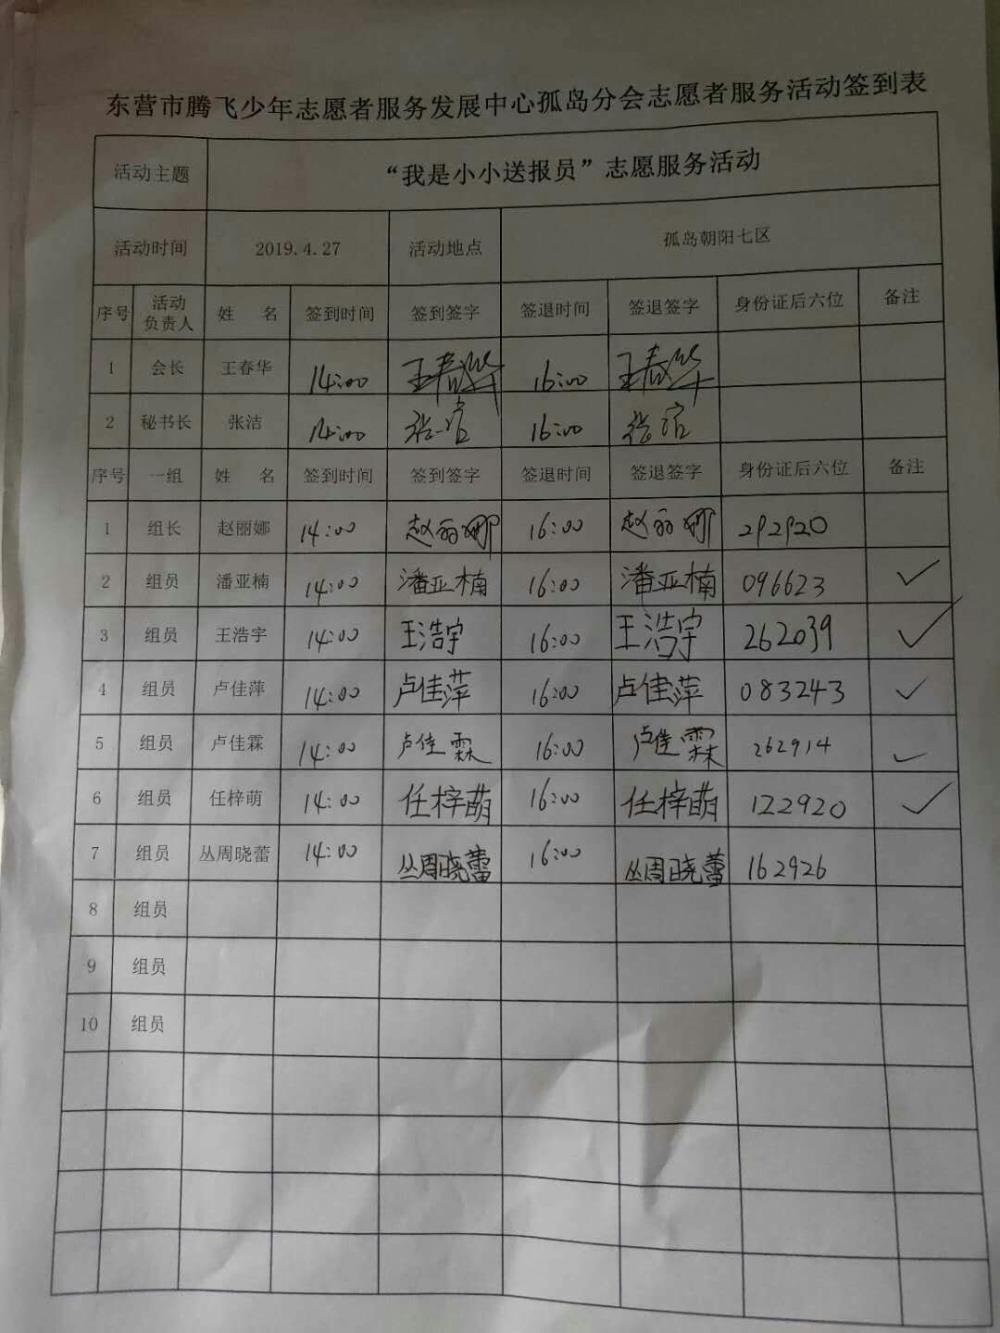 东营市腾飞少年志愿者服务发展中心孤岛分会志愿者服务活动签到表
活动主题 “我是小小送报员”志愿服务活动
活动时间 2019.4.27 活动地点 孤岛朝阳七区
序号 活动负责人 姓 名 签到时间 签到签字 签退时间 签退签字 身份证后六位 备注
1 会长 王春华 14:00 王春华 16:00 王春华
2 秘书长 张洁 14:00 16:00
序号 一组 姓 名 签到时间 签到签字 签退时间 签退签字 身份证后六位 备注
1 组长 赵丽娜 14:00 赵丽娜 16:00 赵丽娜 292920
2 组员 潘亚楠 14:00 潘亚楠 16:00 潘亚楠 096623 ✓
3 组员 王浩宇 14:00 王浩宇 16:00 王浩宇 262039 ✓
4 组员 卢佳萍 14:00 卢佳萍 16:00 卢佳萍 083243 ✓
5 组员 卢佳霖 14:00 卢佳霖 16:00 卢佳霖 262914 ✓
6 组员 任梓萌 14:00 任梓萌 16:00 任梓萌 122920 ✓
7 组员 丛周晓蕾 14:00 丛周晓蕾 16:00 丛周晓蕾 162926
8 组员
9 组员
10 组员